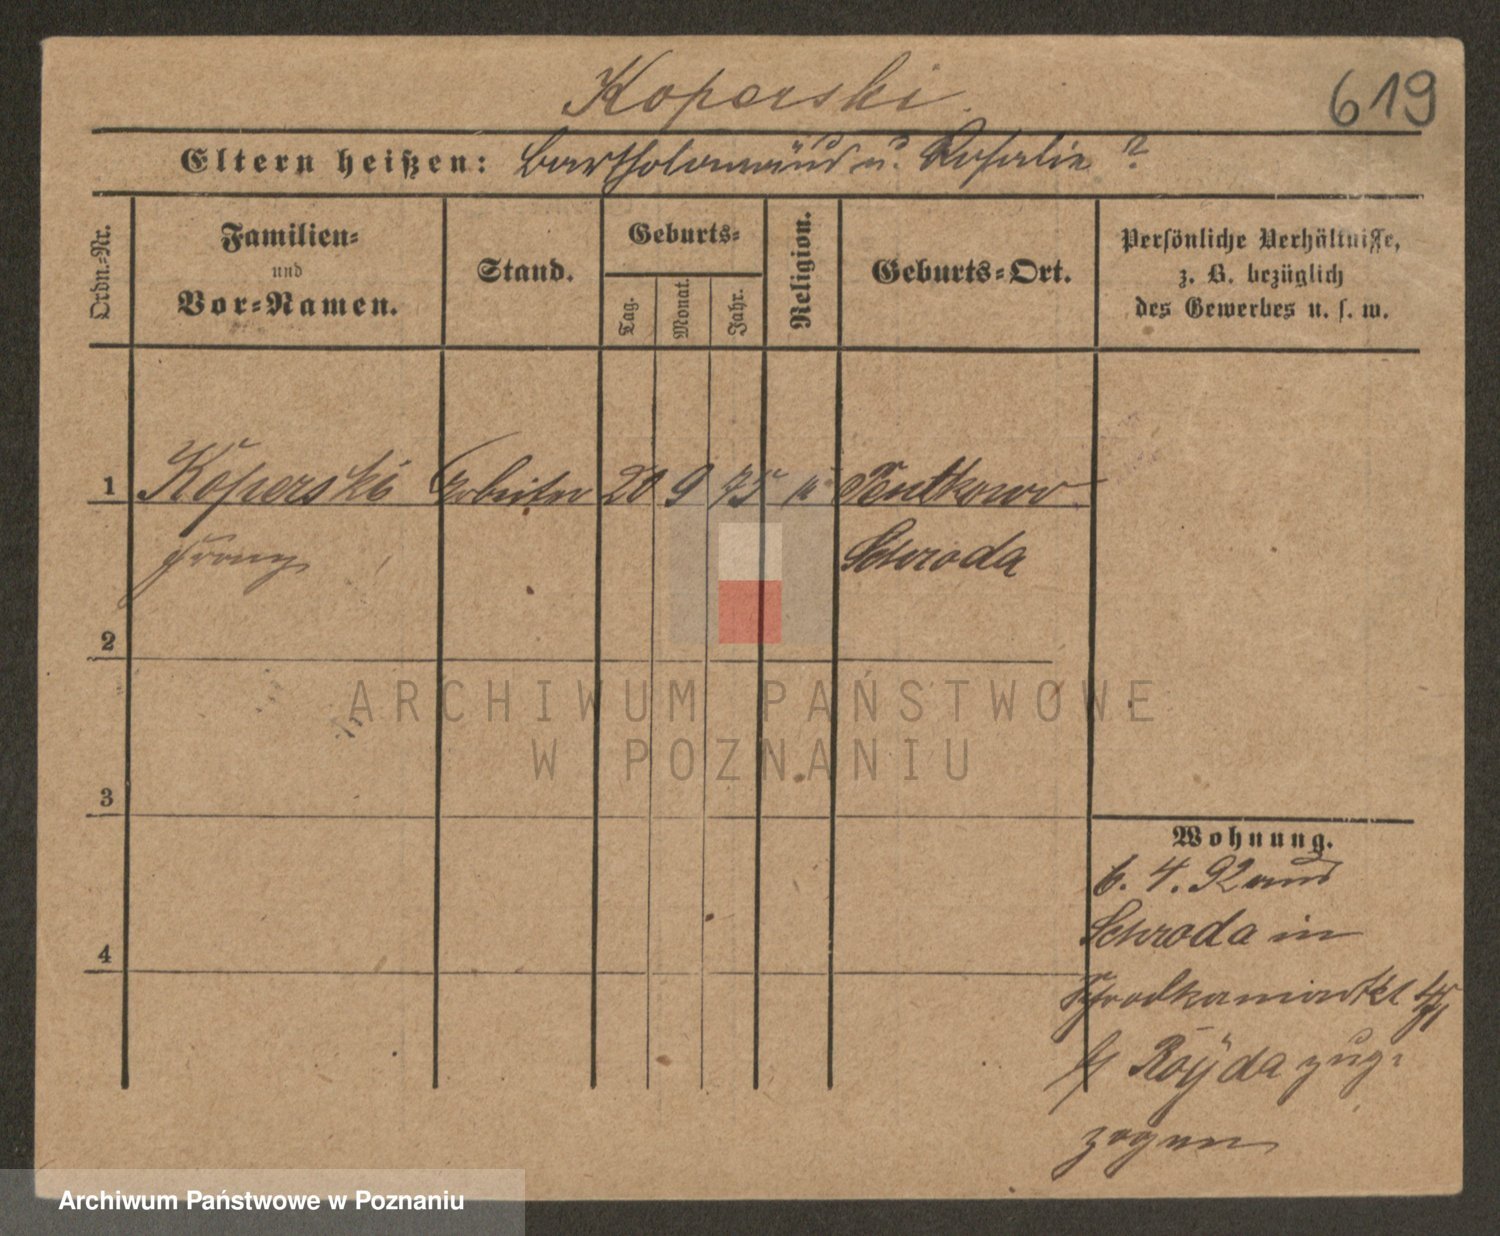 Koperski
619
Eltern heißen: Bartholomäus u. Rosalie ?
Ordn.-Nr.
Familien-
und
Vor-Namen.
Stand.
Geburts-
Tag.
Monat.
Jahr.
Religion.
Geburts-Ort.
Persönliche Verhältnisse,
z. B. bezüglich
des Gewerbes u. s. w.
1 Koperski Arbeiter 20 9 75 k Rutkowo
Franz
Schroda
2
3
4
Wohnung.
6. 4. 92 aus
Schroda in
b/ Royda zuge-
zogen
ARCHIWUM PAŃSTWOWE
W POZNANIU
Archiwum Państwowe w Poznaniu